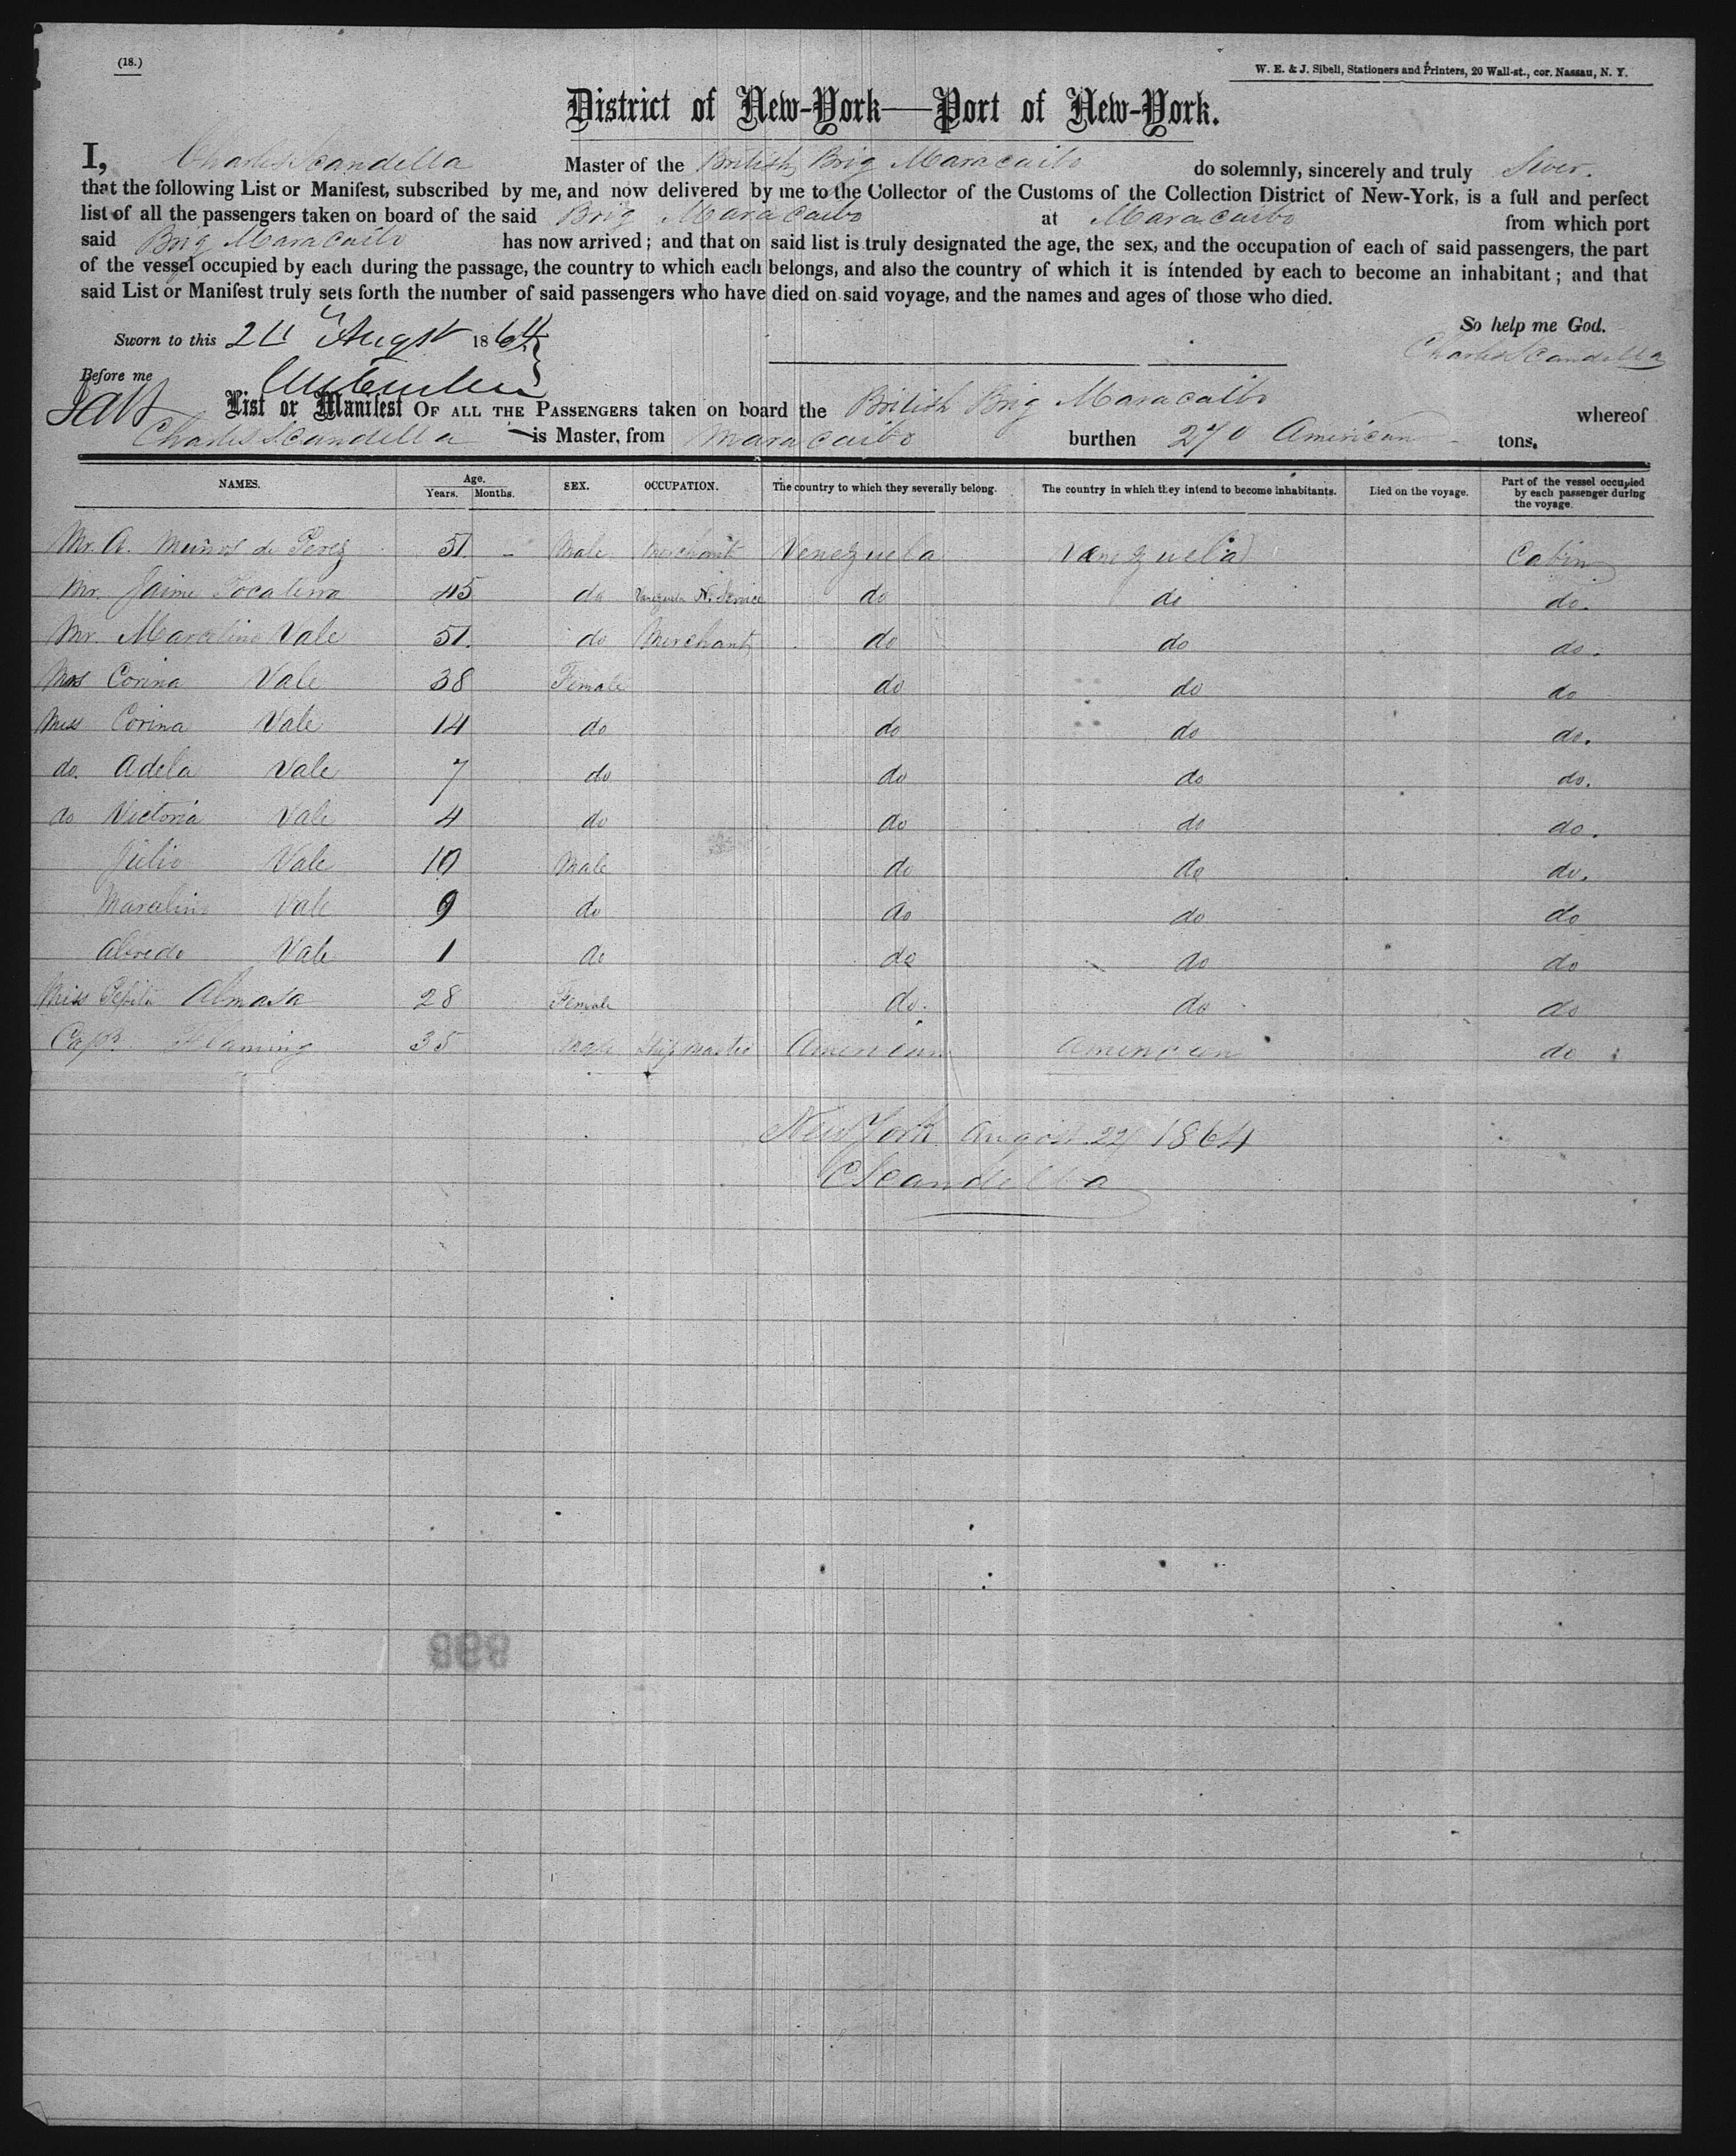 (18.)
W. E. & J. Sibell, Stationers and Printers, 20 Wall-st., cor. Nassau, N. Y.
District of New-York—Port of New-York.
I, Charles Scandella Master of the British Brig Maracaibo do solemnly, sincerely and truly Swer.
that the following List or Manifest, subscribed by me, and now delivered by me to the Collector of the Customs of the Collection District of New-York, is a full and perfect
list of all the passengers taken on board of the said Brig Maracaibo at Maracaibo from which port
said Brig Maracaibo has now arrived; and that on said list is truly designated the age, the sex, and the occupation of each of said passengers, the part
of the vessel occupied by each during the passage, the country to which each belongs, and also the country of which it is intended by each to become an inhabitant; and that
said List or Manifest truly sets forth the number of said passengers who have died on said voyage, and the names and ages of those who died.
So help me God.
Sworn to this Augst 1864
Charles Scandella
Before me
List or Manifest OF ALL THE PASSENGERS taken on board the British Brig Maracaibo whereof
Charles Scandella is Master, from Maracaibo burthen 270 American tons.
NAMES. Age. Years. Months. SEX. OCCUPATION. The country to which they severally belong. The country in which they intend to become inhabitants. Died on the voyage. Part of the vessel occupied by each passenger during the voyage.
Mr. A. Muños de Perez 51 - Male Merchant Venezuela Venezuela Cabin
Mr. Jaime Pocaterra 45 do Venezuela N. Service do do do.
Mr. Marcelino Vale 51. do Merchant do do do.
Mrs Corina Vale 38 Female do do do
Miss Corina Vale 14 do do do do.
do. Adela Vale 7 do do do do.
do Victoria Vale 4 do do do do.
Julio Vale 10 Male do do do.
Marcelino Vale 9 do do do do
Alfredo Vale 1 do do do do
Miss Pepita Almasa 28 Female do. do do
Capt. Flaming 35 Male Ship Master American American do
New York August 22/ 1864
C Scandella